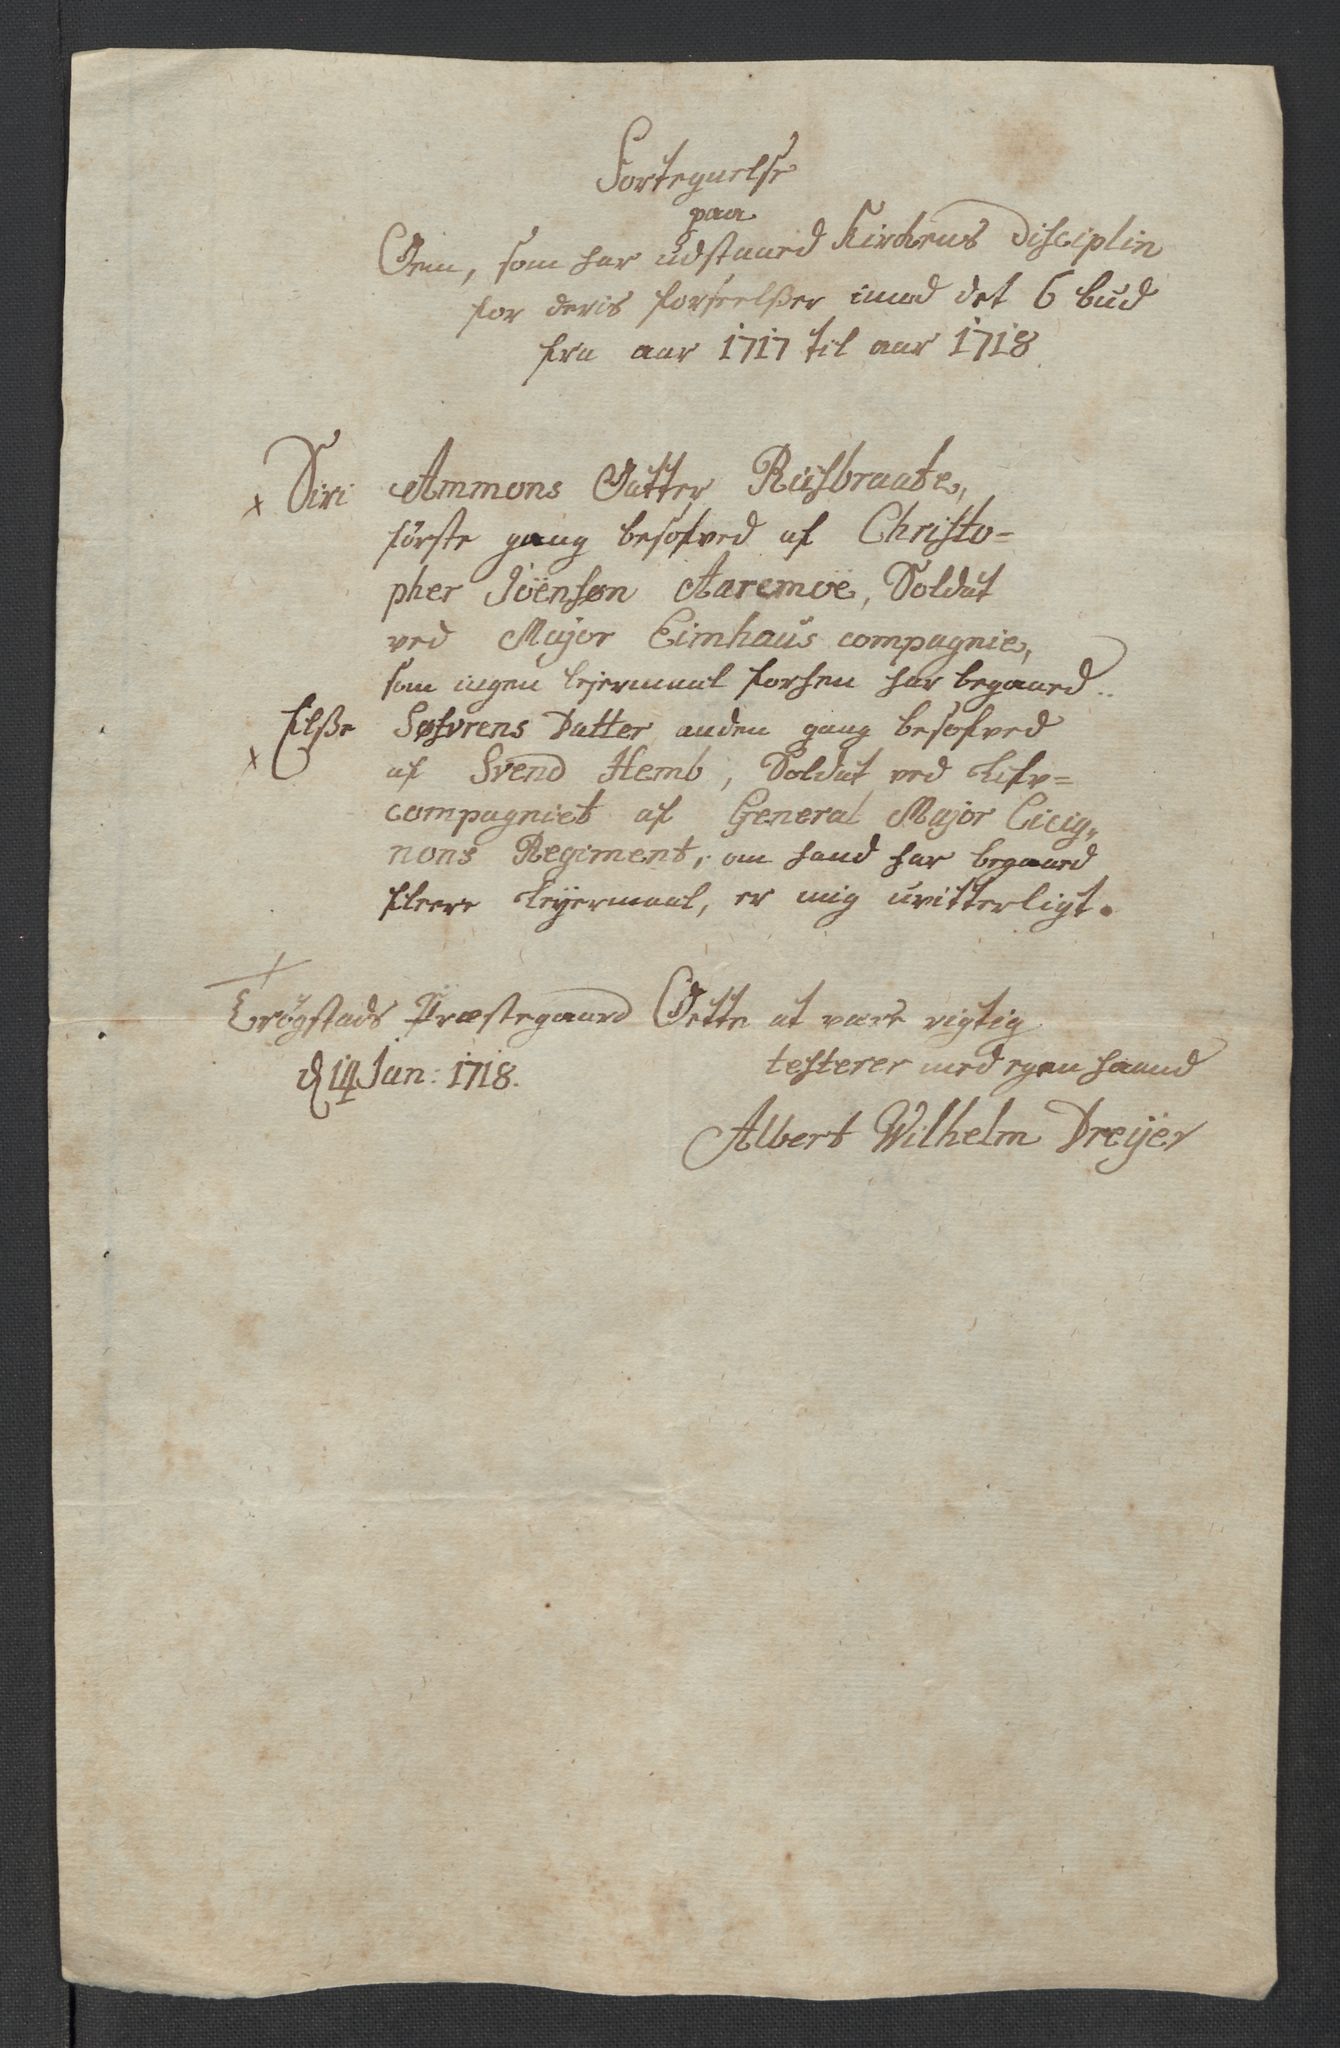 Fortegnelse
paa
Dem, som har udstaaed Kirchens Disciplin
for deris forseelßer imod det 6 bud
fra aar 1717 til aar 1718
x Siri Ammons Datter Riisbraate,
første gang besofved af Christo=
pher Joënsøn Aaremoe, Soldat
ved Major Eimhaus compagnie,
som ingen lejermaal forhen har begaaed.
x Elße Søfvrens Datter anden gang besofved
af Svend Hemb, Soldat ved Lifv=
compagniet af General Major Cicig=
nons Regiment, om hand har begaaed
fleere Leyermaal, er mig uvitterligt.
Trögstads Præstegaard
d 14 Jan: 1718.
Dette at være rigtig
testerer med egen haand
Albert Wilhelm Dreÿer